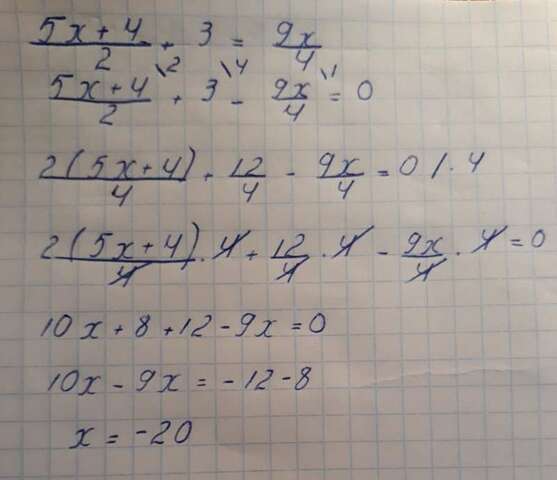 (5x+4)/2 + 3 = 9x/4
(5x+4)/2 \2 + 3 \4 - 9x/4 \1 = 0
2(5x+4)/4 + 12/4 - 9x/4 = 0 / · 4
2(5x+4)/4 · 4 + 12/4 · 4 - 9x/4 · 4 = 0
10x + 8 + 12 - 9x = 0
10x - 9x = -12 - 8
x = -20